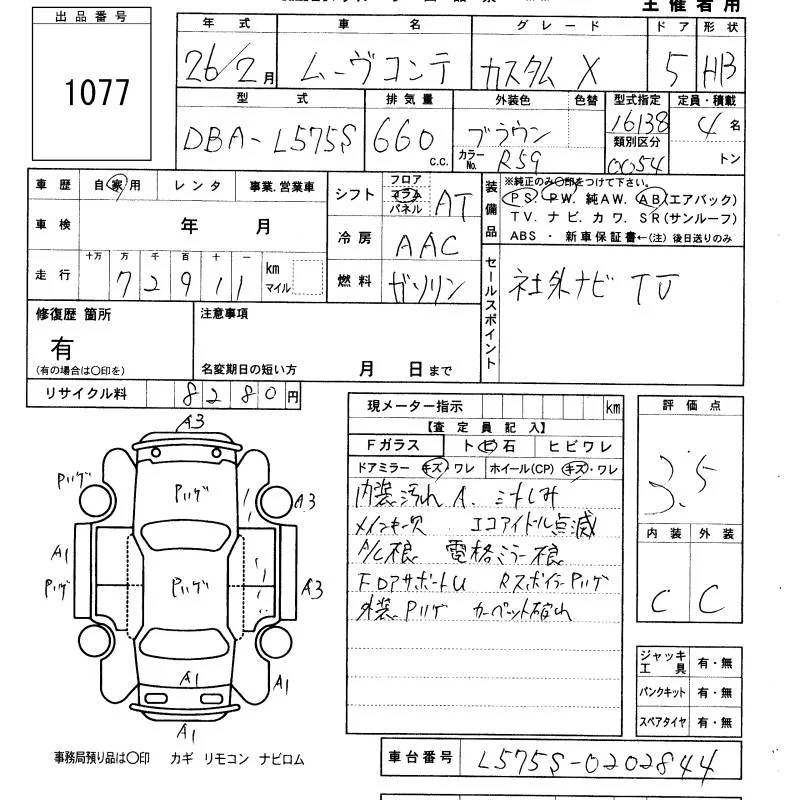 主催者用
出品番号
1077
年式 車名 グレード ドア 形状
26/2月 ムーヴコンテ カスタム X 5 HB
型式 排気量 外装色 色替 型式指定 定員・積載
DBA-L575S 660 c.c. ブラウン 16138 4名
カラーNo. R59 類別区分 0054 トン
車歴 自家用 レンタ 事業.営業車
車検 年 月
走行 十万 万 千 百 十 一 km マイル
7 2 9 1 1
シフト フロア コラム パネル AT
冷房 AAC
燃料 ガソリン
装備品
※純正のみ○印をつけて下さい。
PS. PW. 純AW. AB(エアバック)
TV. ナビ. カワ. SR(サンルーフ)
ABS ・ 新車保証書←(注) 後日送りのみ
セールスポイント
社外ナビ TV
修復歴 箇所
有
(有の場合は○印を)
注意事項
名変期日の短い方 月 日まで
リサイクル料 8280円
A3
Pリゲ Pリゲ A3
A1 Pリゲ
Pリゲ A3
A1 A1
A1
事務局預り品は○印 カギ リモコン ナビロム
現メーター指示 km
【査定員記入】
Fガラス トビ石 ヒビワレ
ドアミラー キズ・ワレ ホイール(CP) キズ・ワレ
内装汚れ A. シートしみ
メインキー欠 エコアイドル点滅
A/C不良 電格ミラー不良
FDアサポートU RスポイラーPリゲ
外装Pリゲ カーペット破れ
評価点
3.5
内装 外装
C C
ジャッキ工具 有・無
パンクキット 有・無
スペアタイヤ 有・無
車台番号 L575S-0202844